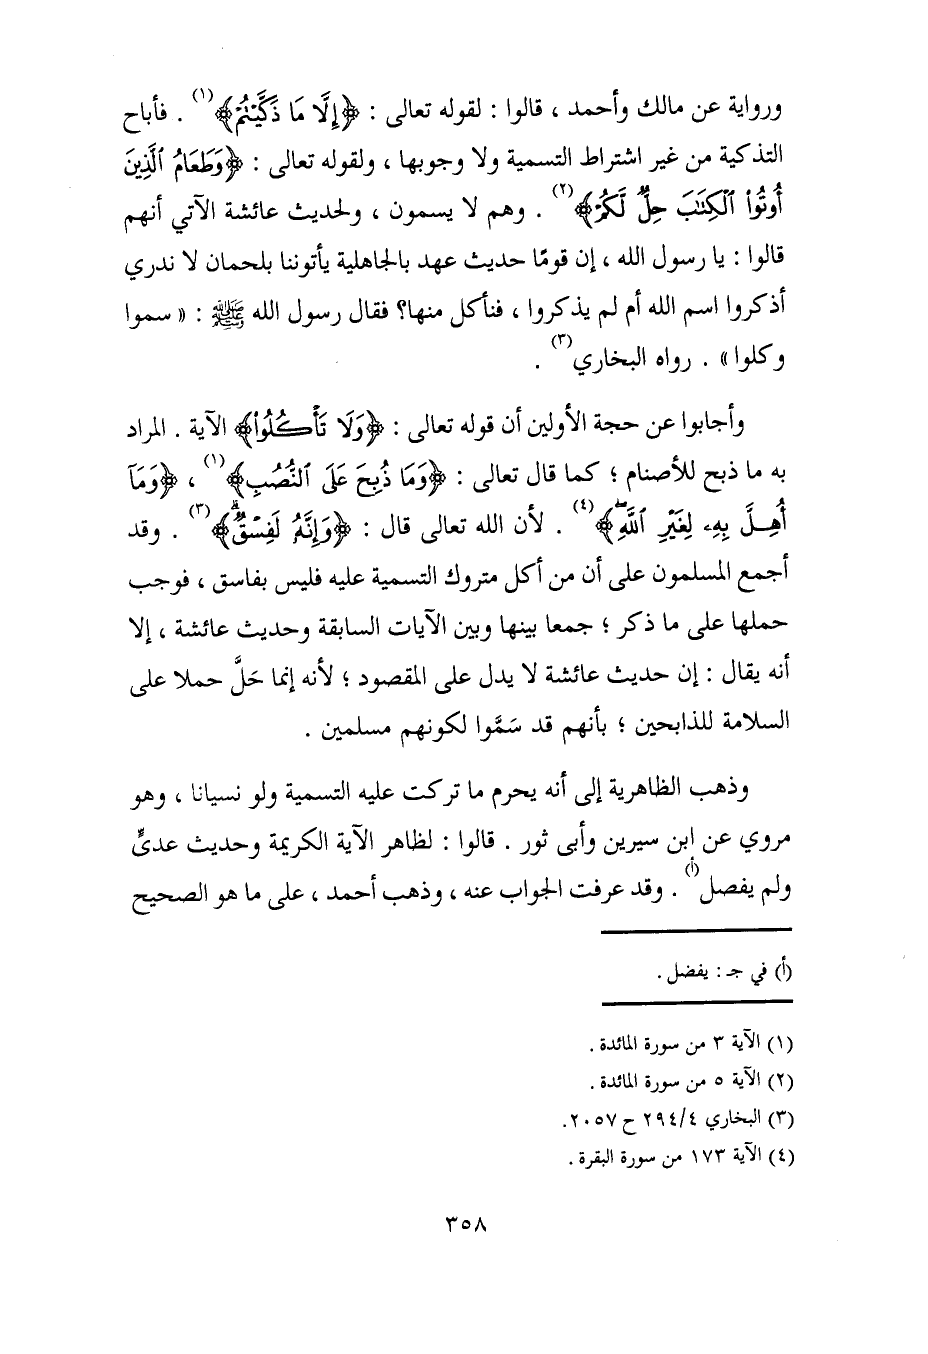 ورواية عن مالك وأحمد ، قالوا : لقوله تعالى : ﴿إِلَّا مَا ذَكَّيْتُمْ﴾(١) . فأباح
التذكية من غير اشتراط التسمية ولا وجوبها ، ولقوله تعالى : ﴿وَطَعَامُ ٱلَّذِينَ
أُوتُوا۟ ٱلْكِتَٰبَ حِلٌّ لَّكُمْ﴾(٢) . وهم لا يسمون ، ولحديث عائشة الآتي أنهم
قالوا : يا رسول الله ، إن قومًا حديث عهد بالجاهلية يأتوننا بلحمان لا ندري
أذكروا اسم الله أم لم يذكروا ، فنأكل منها؟ فقال رسول الله ﷺ : « سموا
وكلوا » . رواه البخاري(٣) .
وأجابوا عن حجة الأولين أن قوله تعالى : ﴿وَلَا تَأْكُلُوا۟﴾ الآية . المراد
به ما ذبح للأصنام ؛ كما قال تعالى : ﴿وَمَا ذُبِحَ عَلَى ٱلنُّصُبِ﴾(١) ، ﴿وَمَآ
أُهِلَّ بِهِۦ لِغَيْرِ ٱللَّهِۖ﴾(٤) . لأن الله تعالى قال : ﴿وَإِنَّهُۥ لَفِسْقٌۗ﴾(٣) . وقد
أجمع المسلمون على أن من أكل متروك التسمية عليه فليس بفاسق ، فوجب
حملها على ما ذكر ؛ جمعا بينها وبين الآيات السابقة وحديث عائشة ، إلا
أنه يقال : إن حديث عائشة لا يدل على المقصود ؛ لأنه إنما حَلَّ حملا على
السلامة للذابحين ؛ بأنهم قد سَمَّوا لكونهم مسلمين .
وذهب الظاهرية إلى أنه يحرم ما تركت عليه التسمية ولو نسيانا ، وهو
مروي عن ابن سيرين وأبى ثور . قالوا : لظاهر الآية الكريمة وحديث عدىٍّ
ولم يفصل(أ) . وقد عرفت الجواب عنه ، وذهب أحمد ، على ما هو الصحيح
(أ) في جـ : يفضل .
(١) الآية ٣ من سورة المائدة .
(٢) الآية ٥ من سورة المائدة .
(٣) البخاري ٢٩٤/٤ ح ٢٠٥٧.
(٤) الآية ١٧٣ من سورة البقرة .
٣٥٨